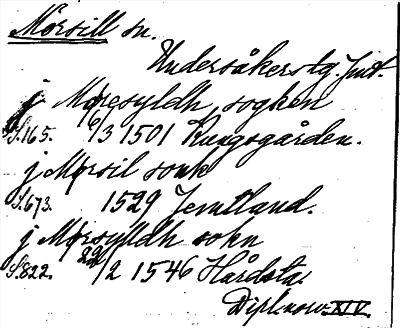 Mörsill sn.
Undersåkers tg. Jmt.
j Møresyldh sogken
S.165. 16/3 1501 Kungsgården.
j Mørsil sonk
S.673. 1529 Jemtland.
j Mørsyldh sokn
S.822. 22/2 1546 Hårdsta.
Dipl. norv. XIV.